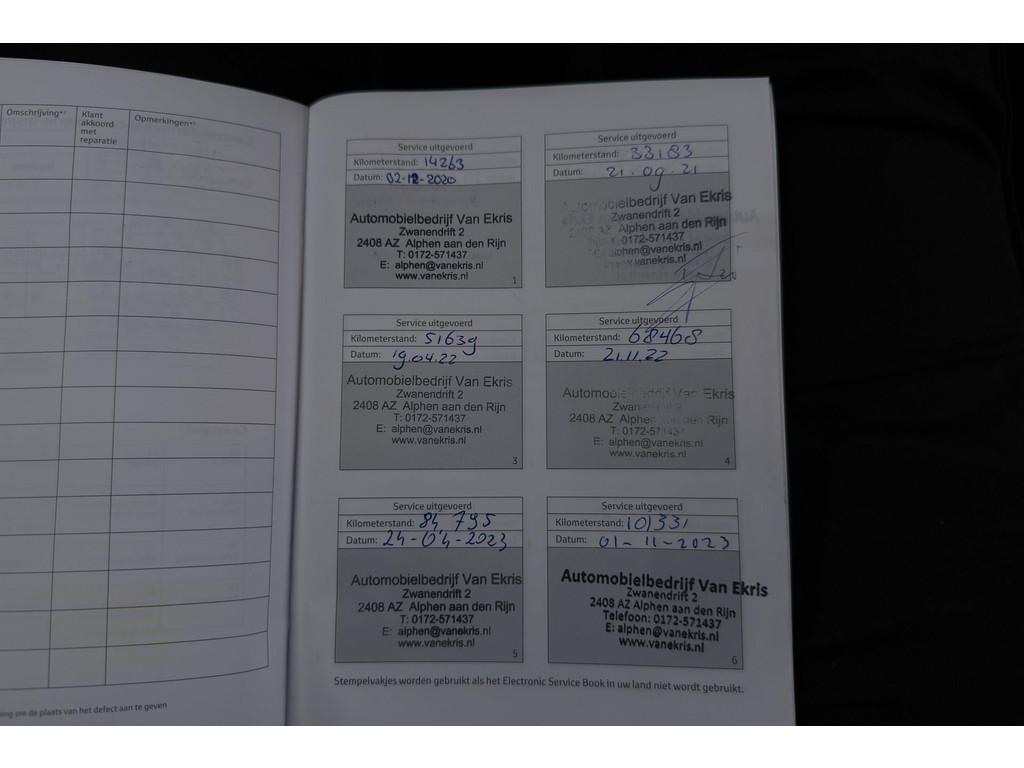 Omschrijving*²
Klant
akkoord
met
reparatie
Opmerkingen*³
om de plaats van het defect aan te geven
Service uitgevoerd
Kilometerstand: 14263
Datum: 02-12-2020
Automobielbedrijf Van Ekris
Zwanendrift 2
2408 AZ Alphen aan den Rijn
T: 0172-571437
E: alphen@vanekris.nl
www.vanekris.nl
1
Service uitgevoerd
Kilometerstand: 33183
Datum: 21.09.21
Automobielbedrijf Van Ekris
Zwanendrift 2
2408 AZ Alphen aan den Rijn
T: 0172-571437
E: alphen@vanekris.nl
www.vanekris.nl
Service uitgevoerd
Kilometerstand: 51639
Datum: 19.04.22
Automobielbedrijf Van Ekris
Zwanendrift 2
2408 AZ Alphen aan den Rijn
T: 0172-571437
E: alphen@vanekris.nl
www.vanekris.nl
3
Service uitgevoerd
Kilometerstand: 68468
Datum: 21.11.22
Automobielbedrijf Van Ekris
Zwanendrift 2
2408 AZ Alphen aan den Rijn
T: 0172-571437
E: alphen@vanekris.nl
www.vanekris.nl
4
Service uitgevoerd
Kilometerstand: 84795
Datum: 24-04-2023
Automobielbedrijf Van Ekris
Zwanendrift 2
2408 AZ Alphen aan den Rijn
T: 0172-571437
E: alphen@vanekris.nl
www.vanekris.nl
5
Service uitgevoerd
Kilometerstand: 101331
Datum: 01-11-2023
Automobielbedrijf Van Ekris
Zwanendrift 2
2408 AZ Alphen aan den Rijn
Telefoon: 0172-571437
E: alphen@vanekris.nl
www.vanekris.nl
6
Stempelvakjes worden gebruikt als het Electronic Service Book in uw land niet wordt gebruikt.